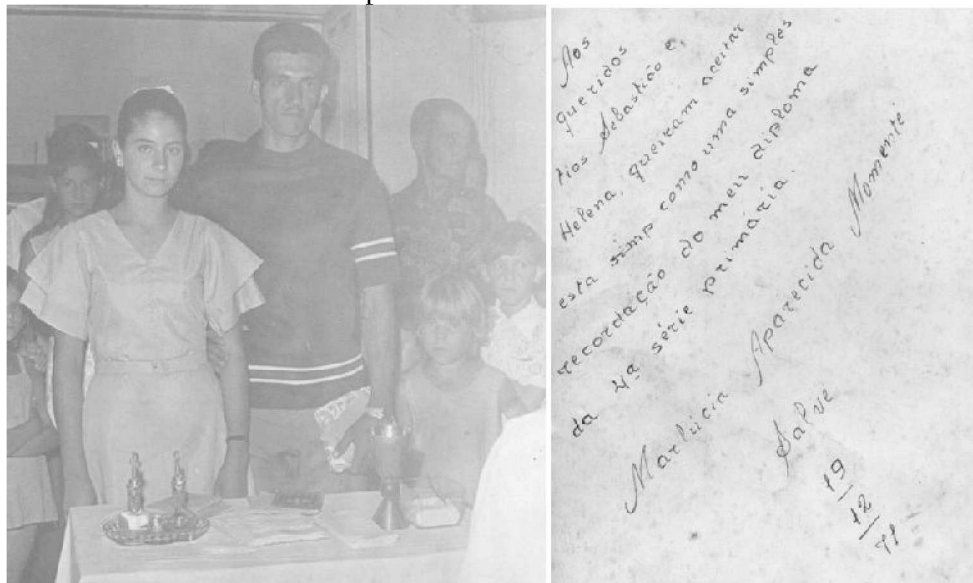 Aos
queridos
tios Sebastião e,
Helena, queiram aceitar
esta simp como uma simples
recordação do meu diploma
da 4ª série primária.
Marlúcia Aparecida Momenté
Salve
19
12
71